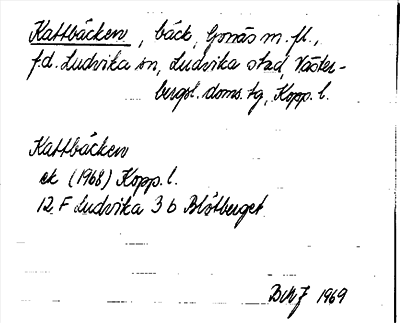 Kattbäcken, bäck, Gonäs m.fl.,
f.d. Ludvika sn, Ludvika stad, Väster-
bergsl. doms. tg, Kopp. l.
Kattbäcken
ek (1968) Kopp. l.
12 F Ludvika 3 b Blötberget
1969